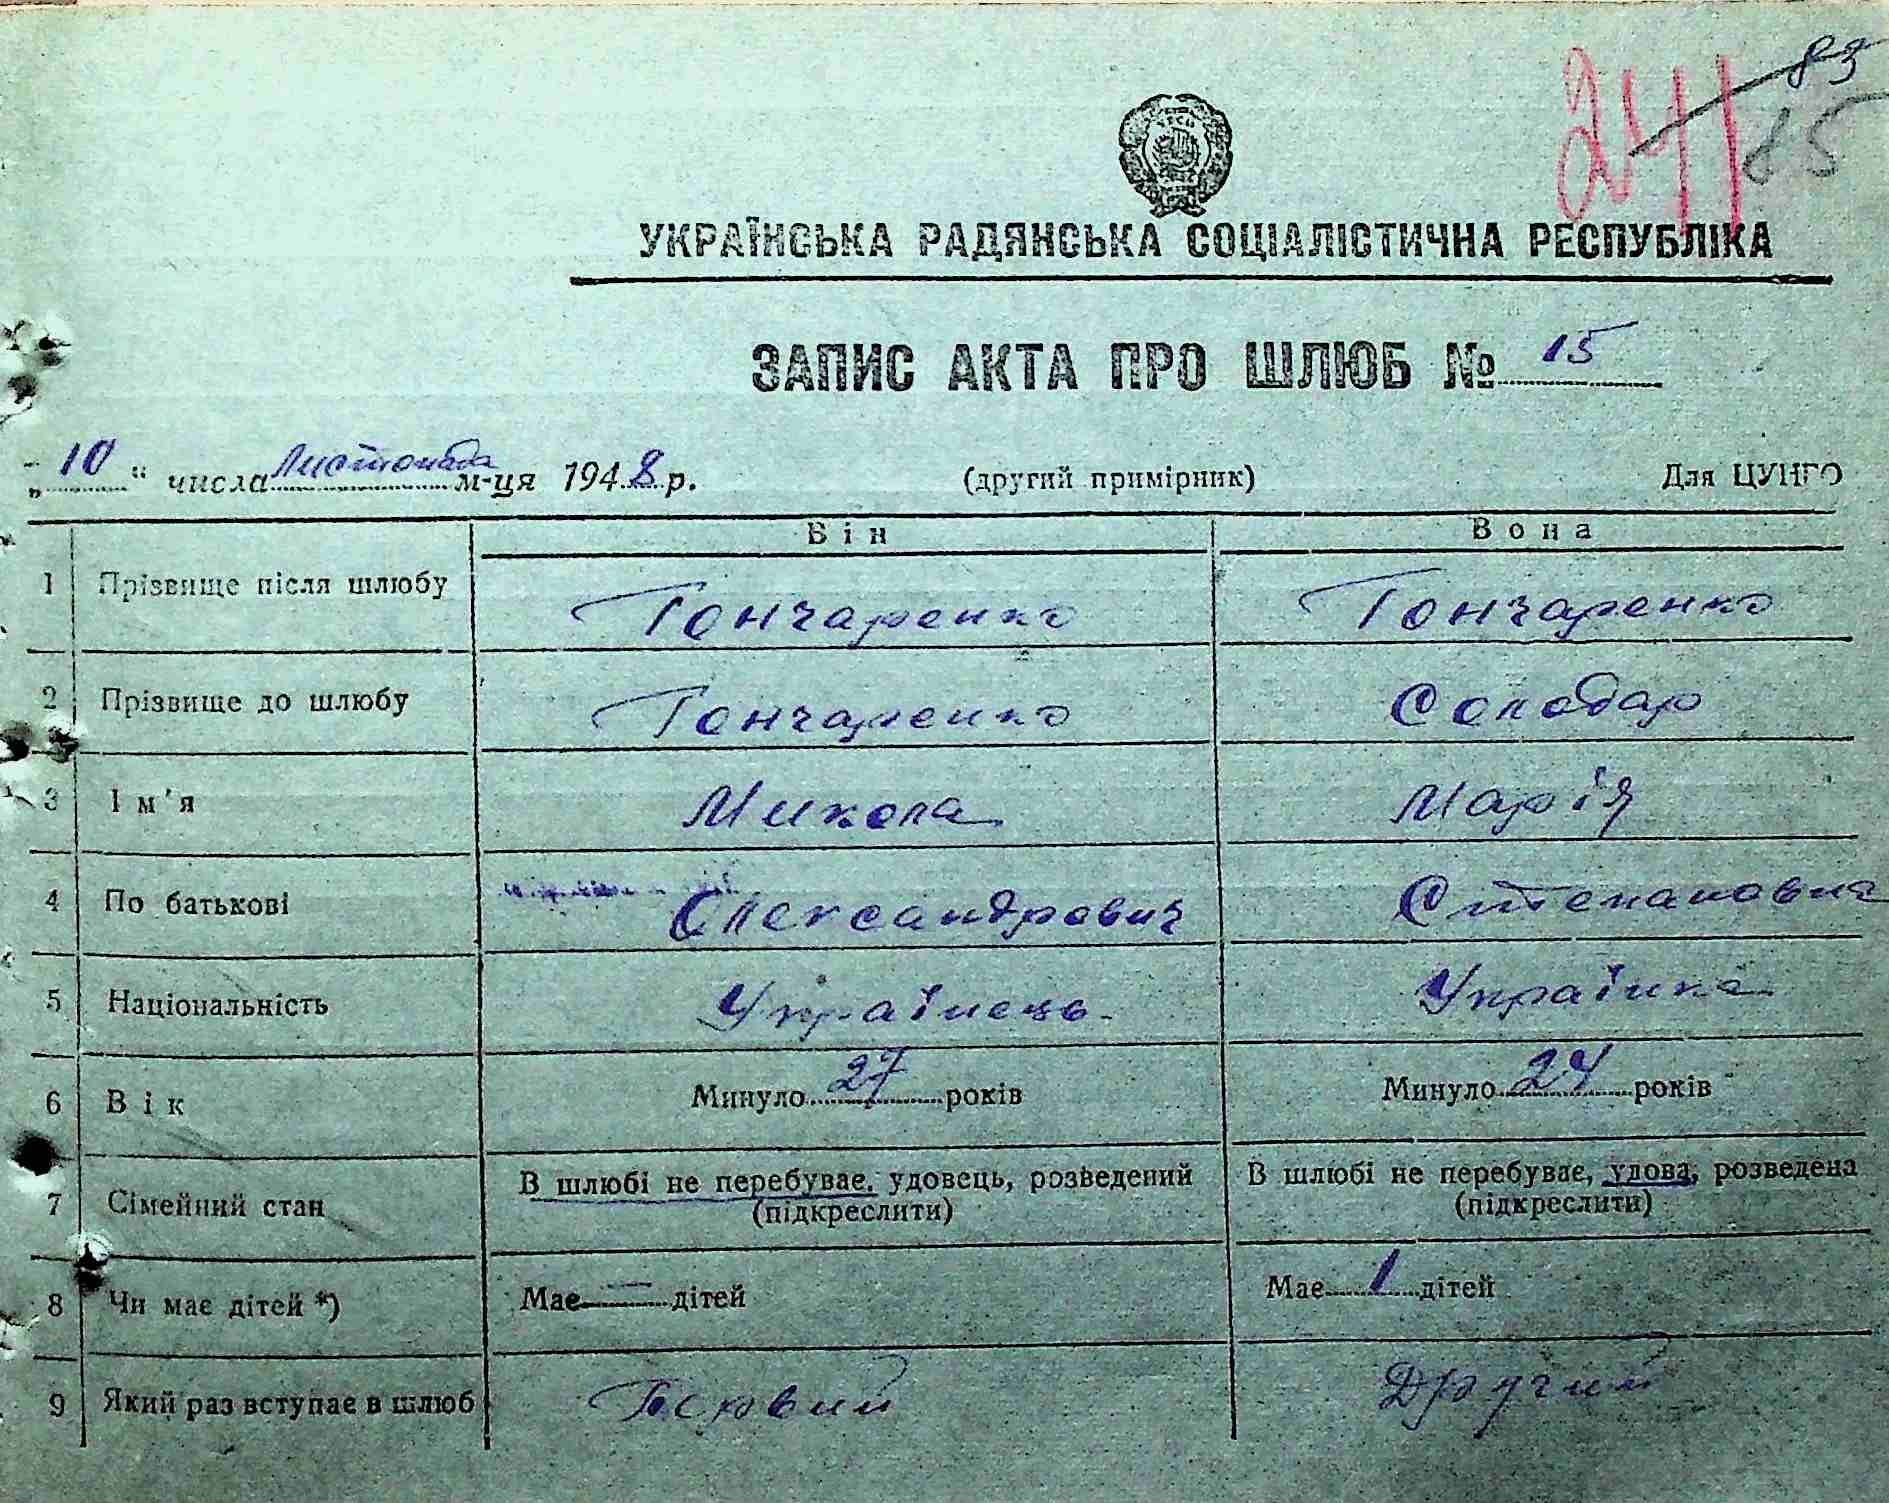 83
241
85
УКРАЇНСЬКА РАДЯНСЬКА СОЦІАЛІСТИЧНА РЕСПУБЛІКА
ЗАПИС АКТА ПРО ШЛЮБ № 15
„10“ числа листопада м-ця 1948 р. (другий примірник) Для ЦУНГО
Він Вона
1 Прізвище після шлюбу Гончаренко Гончаренко
2 Прізвище до шлюбу Гончаренко Солодар
3 Ім'я Микола Марія
4 По батькові Олександрович Степановна
5 Національність Українець Українка
6 Вік Минуло 27 років Минуло 24 років
7 Сімейний стан В шлюбі не перебуває, удовець, розведений (підкреслити) В шлюбі не перебуває, удова, розведена (підкреслити)
8 Чи має дітей *) Має — дітей Має 1 дітей
9 Який раз вступає в шлюб Первий Другий